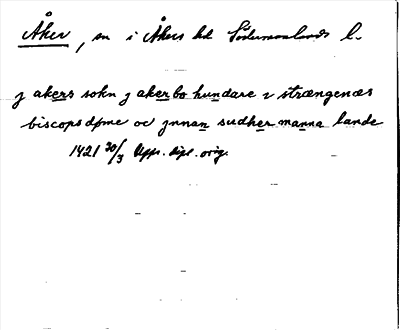 Åker, sn i Åkers hd Södermanlands l.
j akers sokn j akerbo hundare i strængenæs
biscopsdøme oc jnnan sudhermanna lande
1421 30/3 Upps. dipl. orig.